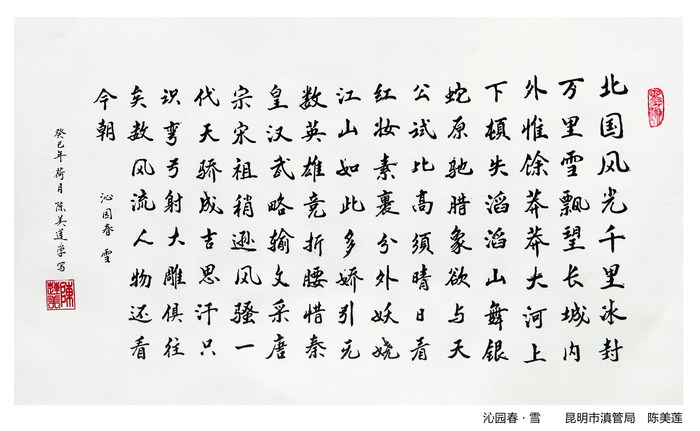 北国风光千里冰封
万里雪飘望长城内
外惟馀莽莽大河上
下頓失滔滔山舞银
蛇原驰腊象欲与天
公试比高須晴日看
红妆素裹分外妖娆
江山如此多娇引无
数英雄竞折腰惜秦
皇汉武略输文采唐
宗宋祖稍逊风骚一
代天骄成吉思汗只
识弯弓射大雕俱往
矣数风流人物还看
今朝
沁园春 雪
癸巳年荷月陈美莲学写
沁园春·雪 昆明市滇管局 陈美莲